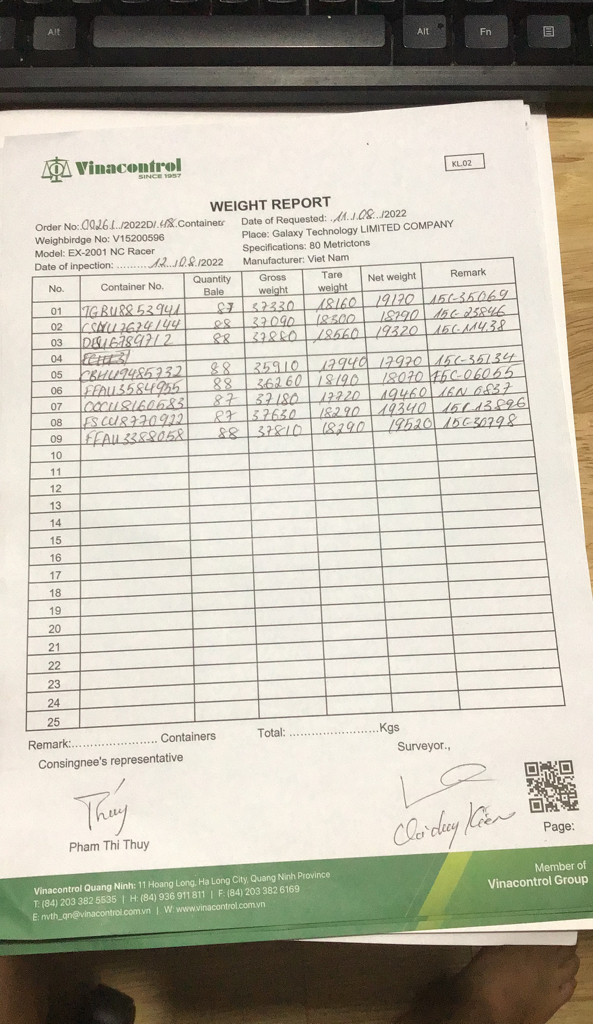 Alt
Alt
Fn
Vinacontrol
SINCE 1957
KL.02
WEIGHT REPORT
Order No: 00261./2022D/.48.Containers Date of Requested: .11./.08../2022
Weighbirdge No: V15200596 Place: Galaxy Technology LIMITED COMPANY
Model: EX-2001 NC Racer Specifications: 80 Metrictons
Date of inpection: .........12./08./2022 Manufacturer: Viet Nam
No. Container No. Quantity Bale Gross weight Tare weight Net weight Remark
01 TGBU8853941 87 37330 18160 19170 15C-35069
02 7674144 88 37090 18300 18790 15C-23846
03 6789712 88 37880 18560 19320 15C-11438
04
05 CBHU9485732 88 35910 17940 17970 15C-35134
06 FFAU3584955 88 36260 18190 18070 15C-06055
07 OOCU8160583 87 37180 17720 19460 16N 0837
08 FSCU8770922 87 37630 18290 19340 13896
09 FFAU3388058 88 37810 18290 19520 15C-30798
10
11
12
13
14
15
16
17
18
19
20
21
22
23
24
25
Remark:........................ Containers Total: .........................Kgs
Consingnee's representative Surveyor.,
Thúy
Pham Thi Thuy
Page:
Vinacontrol Quang Ninh: 11 Hoang Long, Ha Long City, Quang Ninh Province
T: (84) 203 382 5535 | H: (84) 936 911 811 | F: (84) 203 382 6169
E: nvth_qn@vinacontrol.com.vn | W: www.vinacontrol.com.vn
Member of
Vinacontrol Group